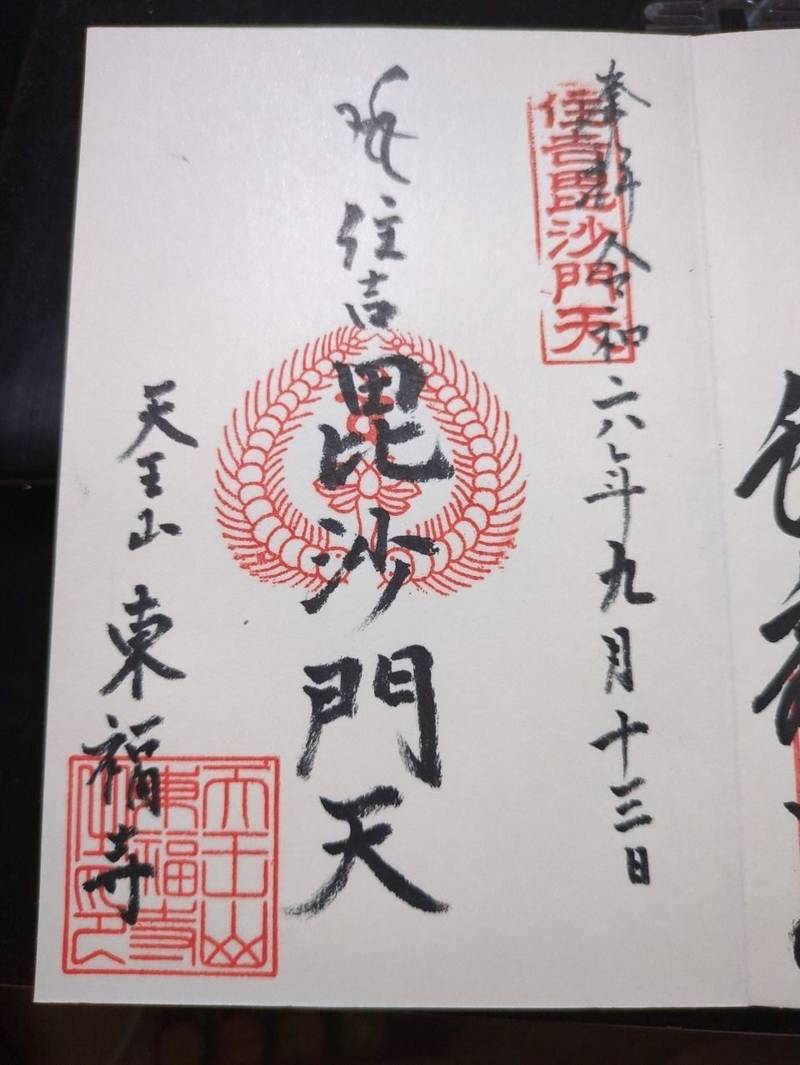 奉拝 令和六年九月十三日
住吉毘沙門天
住吉毘沙門天
天王山 東福寺
天王山
東福寺